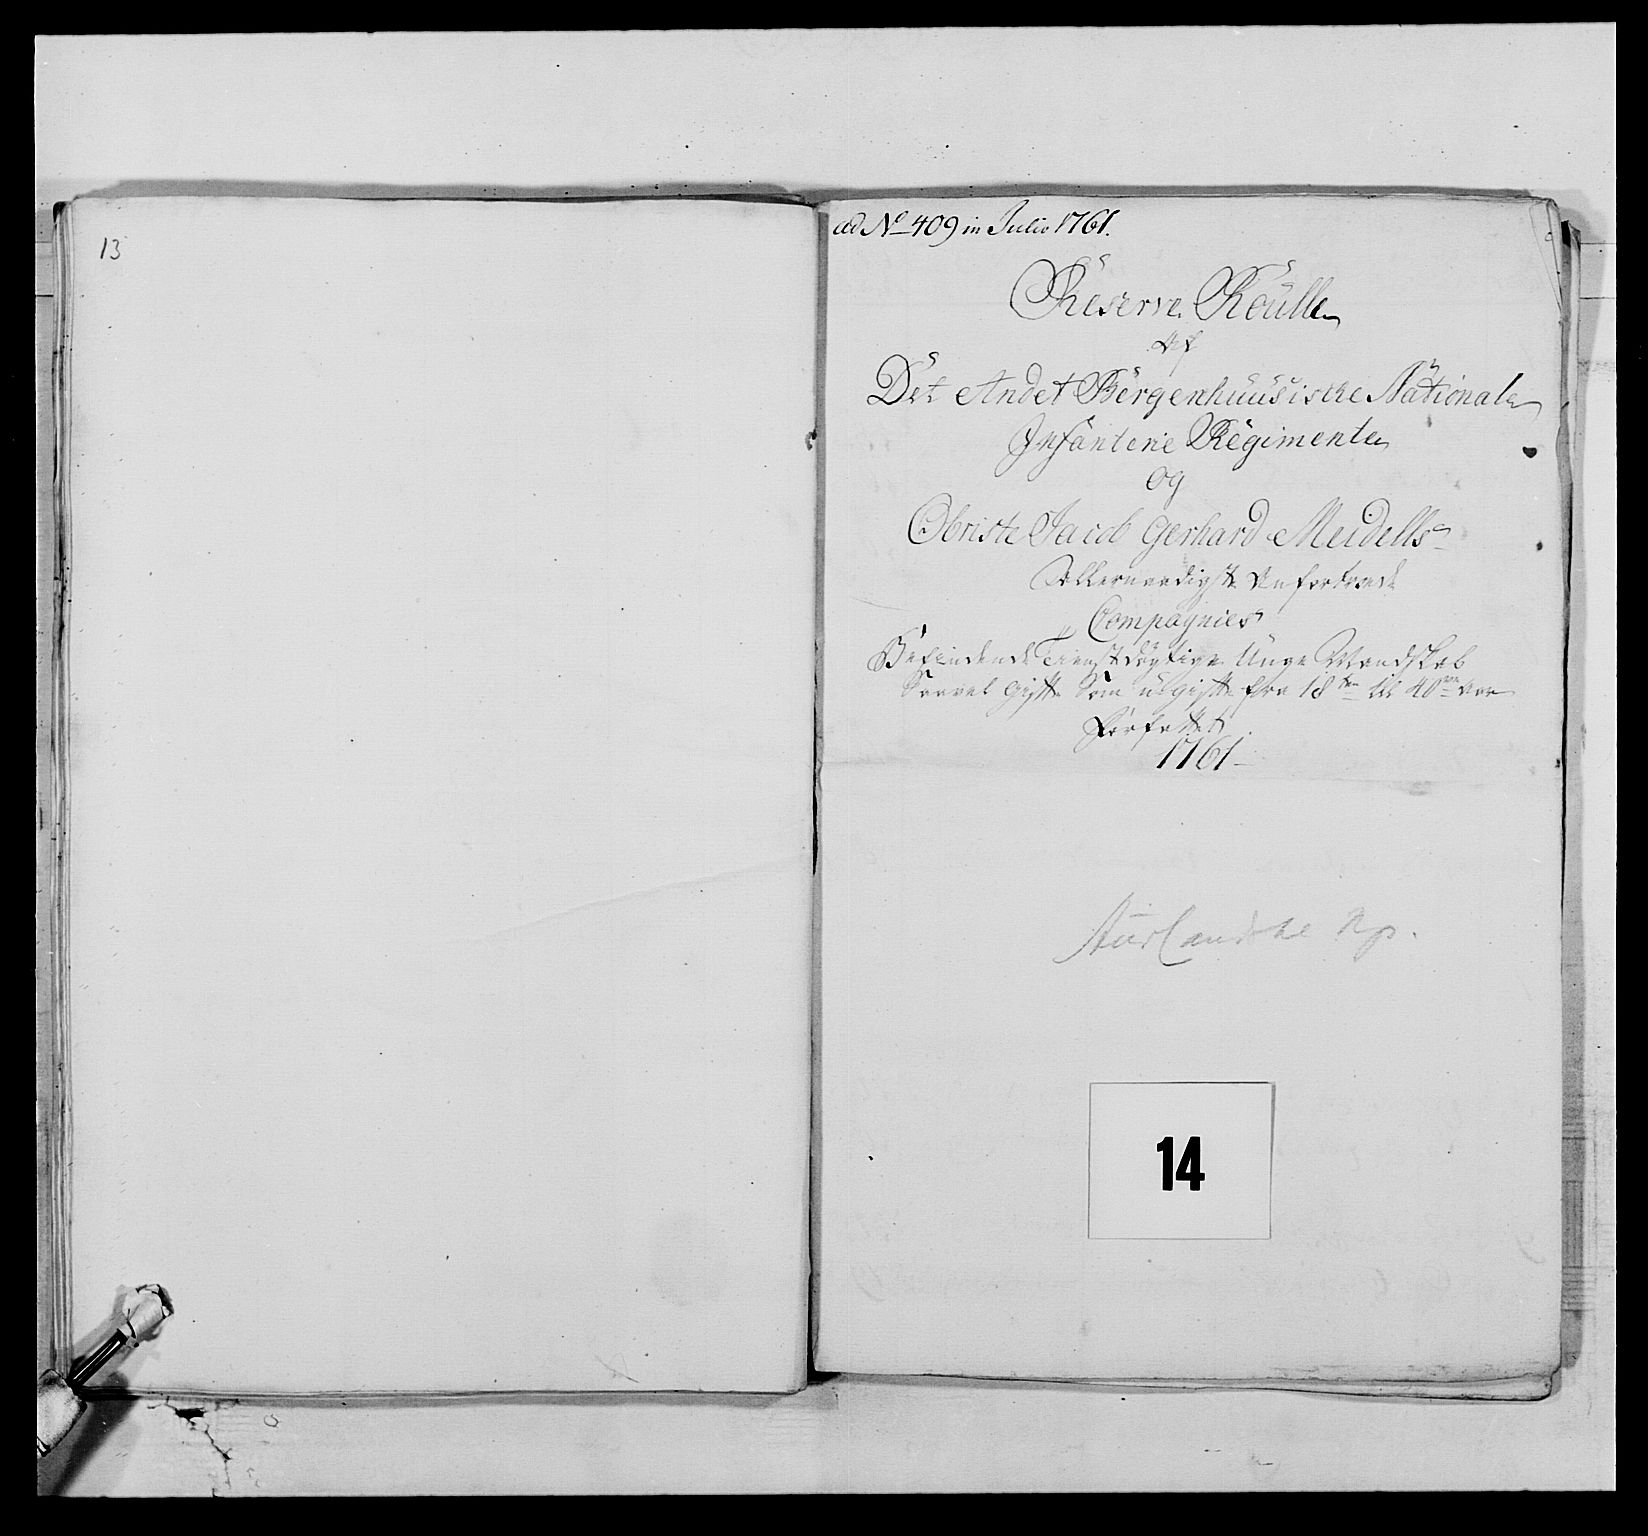 13
ad No 409 in Julio 1761.
Reserve Roulle
Af
Det Andet Bergenhuusiske National
Infanterie Regimente
og
Obriste Jacob Gerhard Meidells
Allernaadigst Anfortroede
Compagnies
Befindende Tienstdygtige Unge Mandskab
Saavel gifte Som ugifte fra 18ten til 40ve Aar
Forfattet
1761
Aurlandske Kp.
14